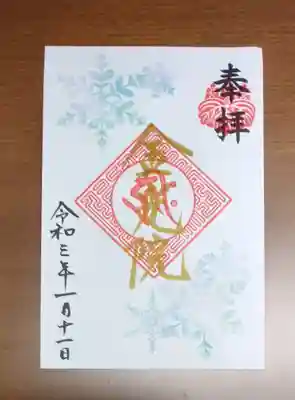 奉拝
院
令和三年一月十一日